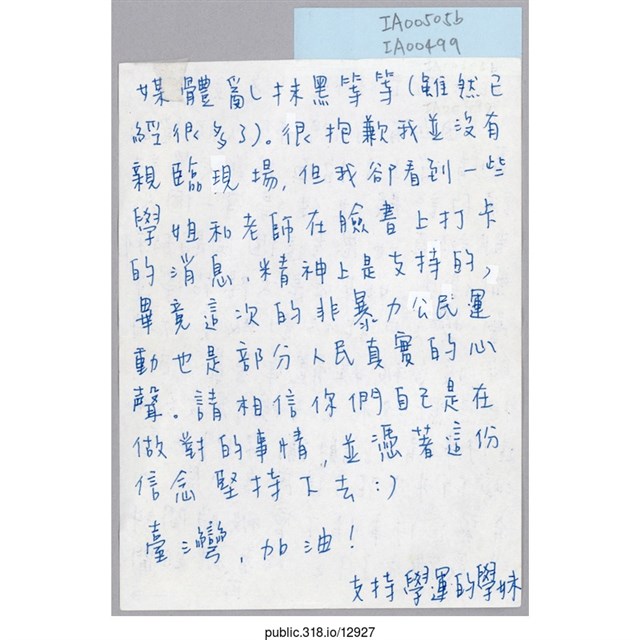 IA00505b
IA00499
媒體亂抹黑等等(雖然已
經很多了)。很抱歉我並沒有
親臨現場,但我卻看到一些
學姐和老師在臉書上打卡
的消息、精神上是支持的,
畢竟這次的非暴力公民運
動也是部分人民真實的心
聲。請相信你們自己是在
做對的事情,並憑著這份
信念堅持下去:)
臺灣,加油!
支持學運的學妹
public.318.io/12927